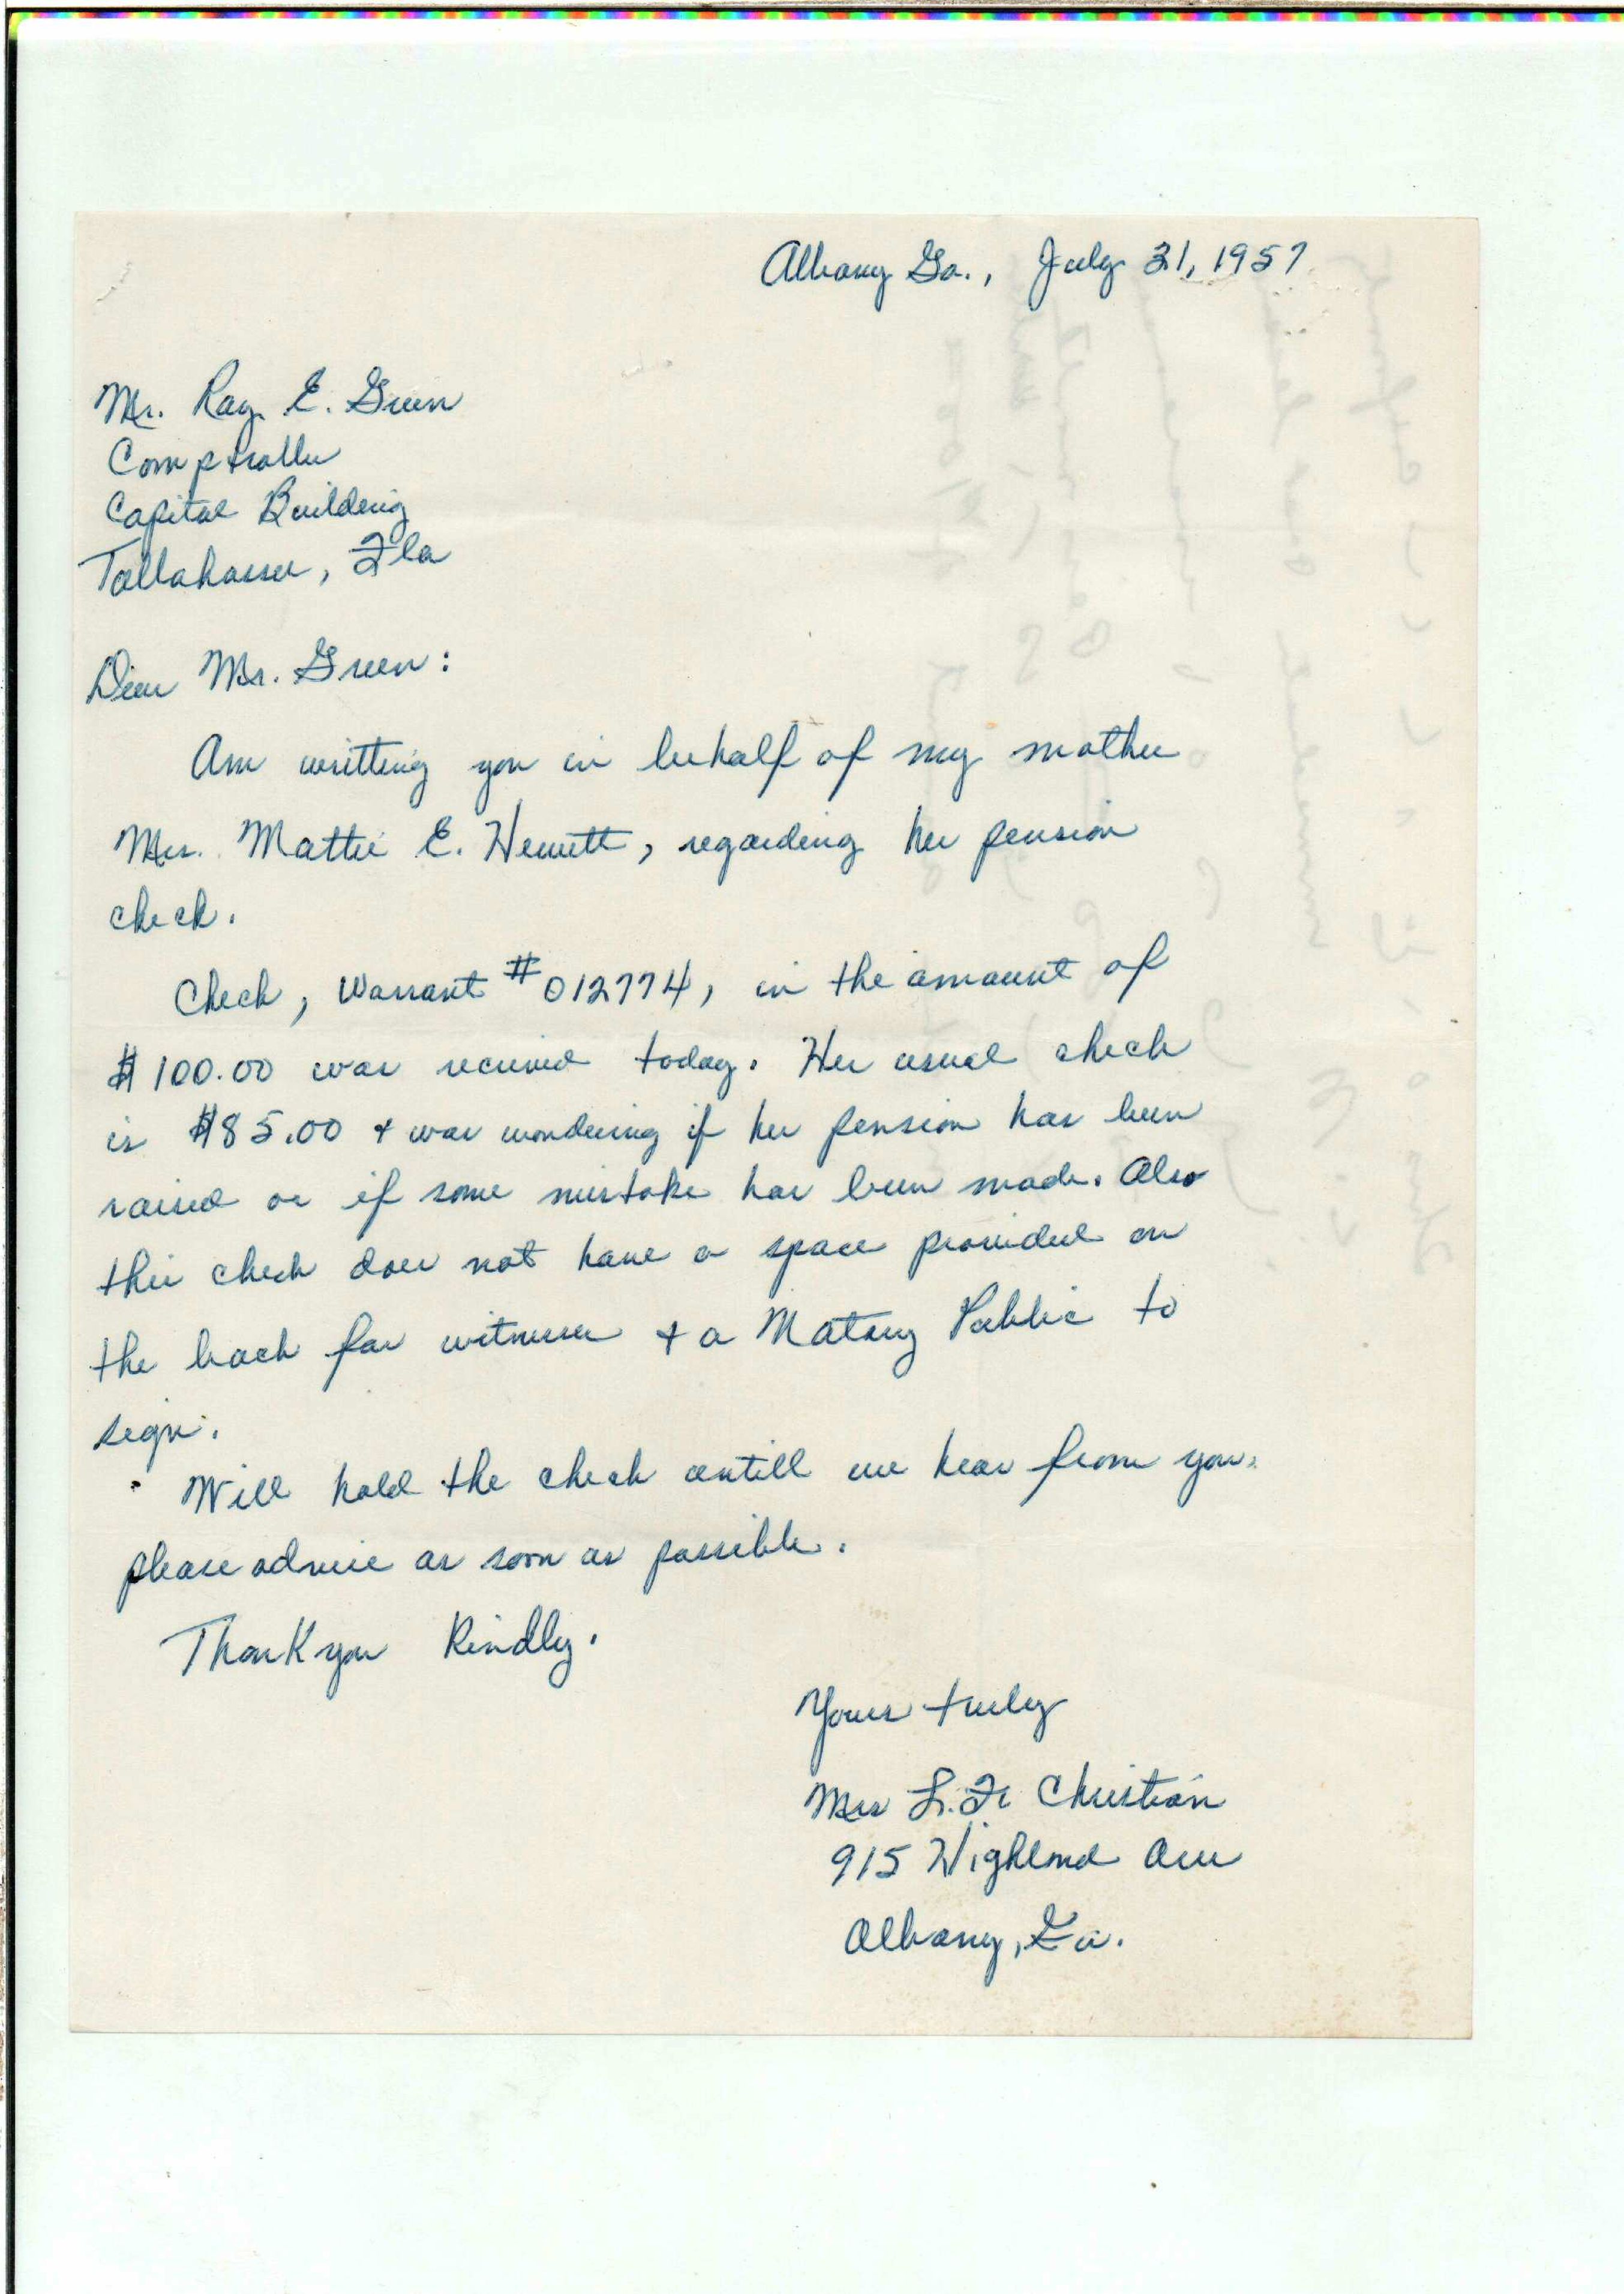 Albany Ga., July 31, 1957
Mr. Ray E. Green
Comptroller
Capital Building
Tallahassee, Fla
Dear Mr. Green:
Am writting you in behalf of my mother
Mrs. Mattie E. Hewett, regarding her pension
check.
Check, Warrant #012774, in the amount of
$100.00 was received today. Her usual check
is $85.00 & was wondering if her pension has been
raised or if some mistake has been made. Also
this check does not have a space provided on
the back for witnesses & a Notary Public to
sign.
Will hold the check untill we hear from you.
please advise as soon as possible.
Thank you Kindly.
Yours truly
Mrs L. F. Christian
915 Highland Ave
Albany, Ga.